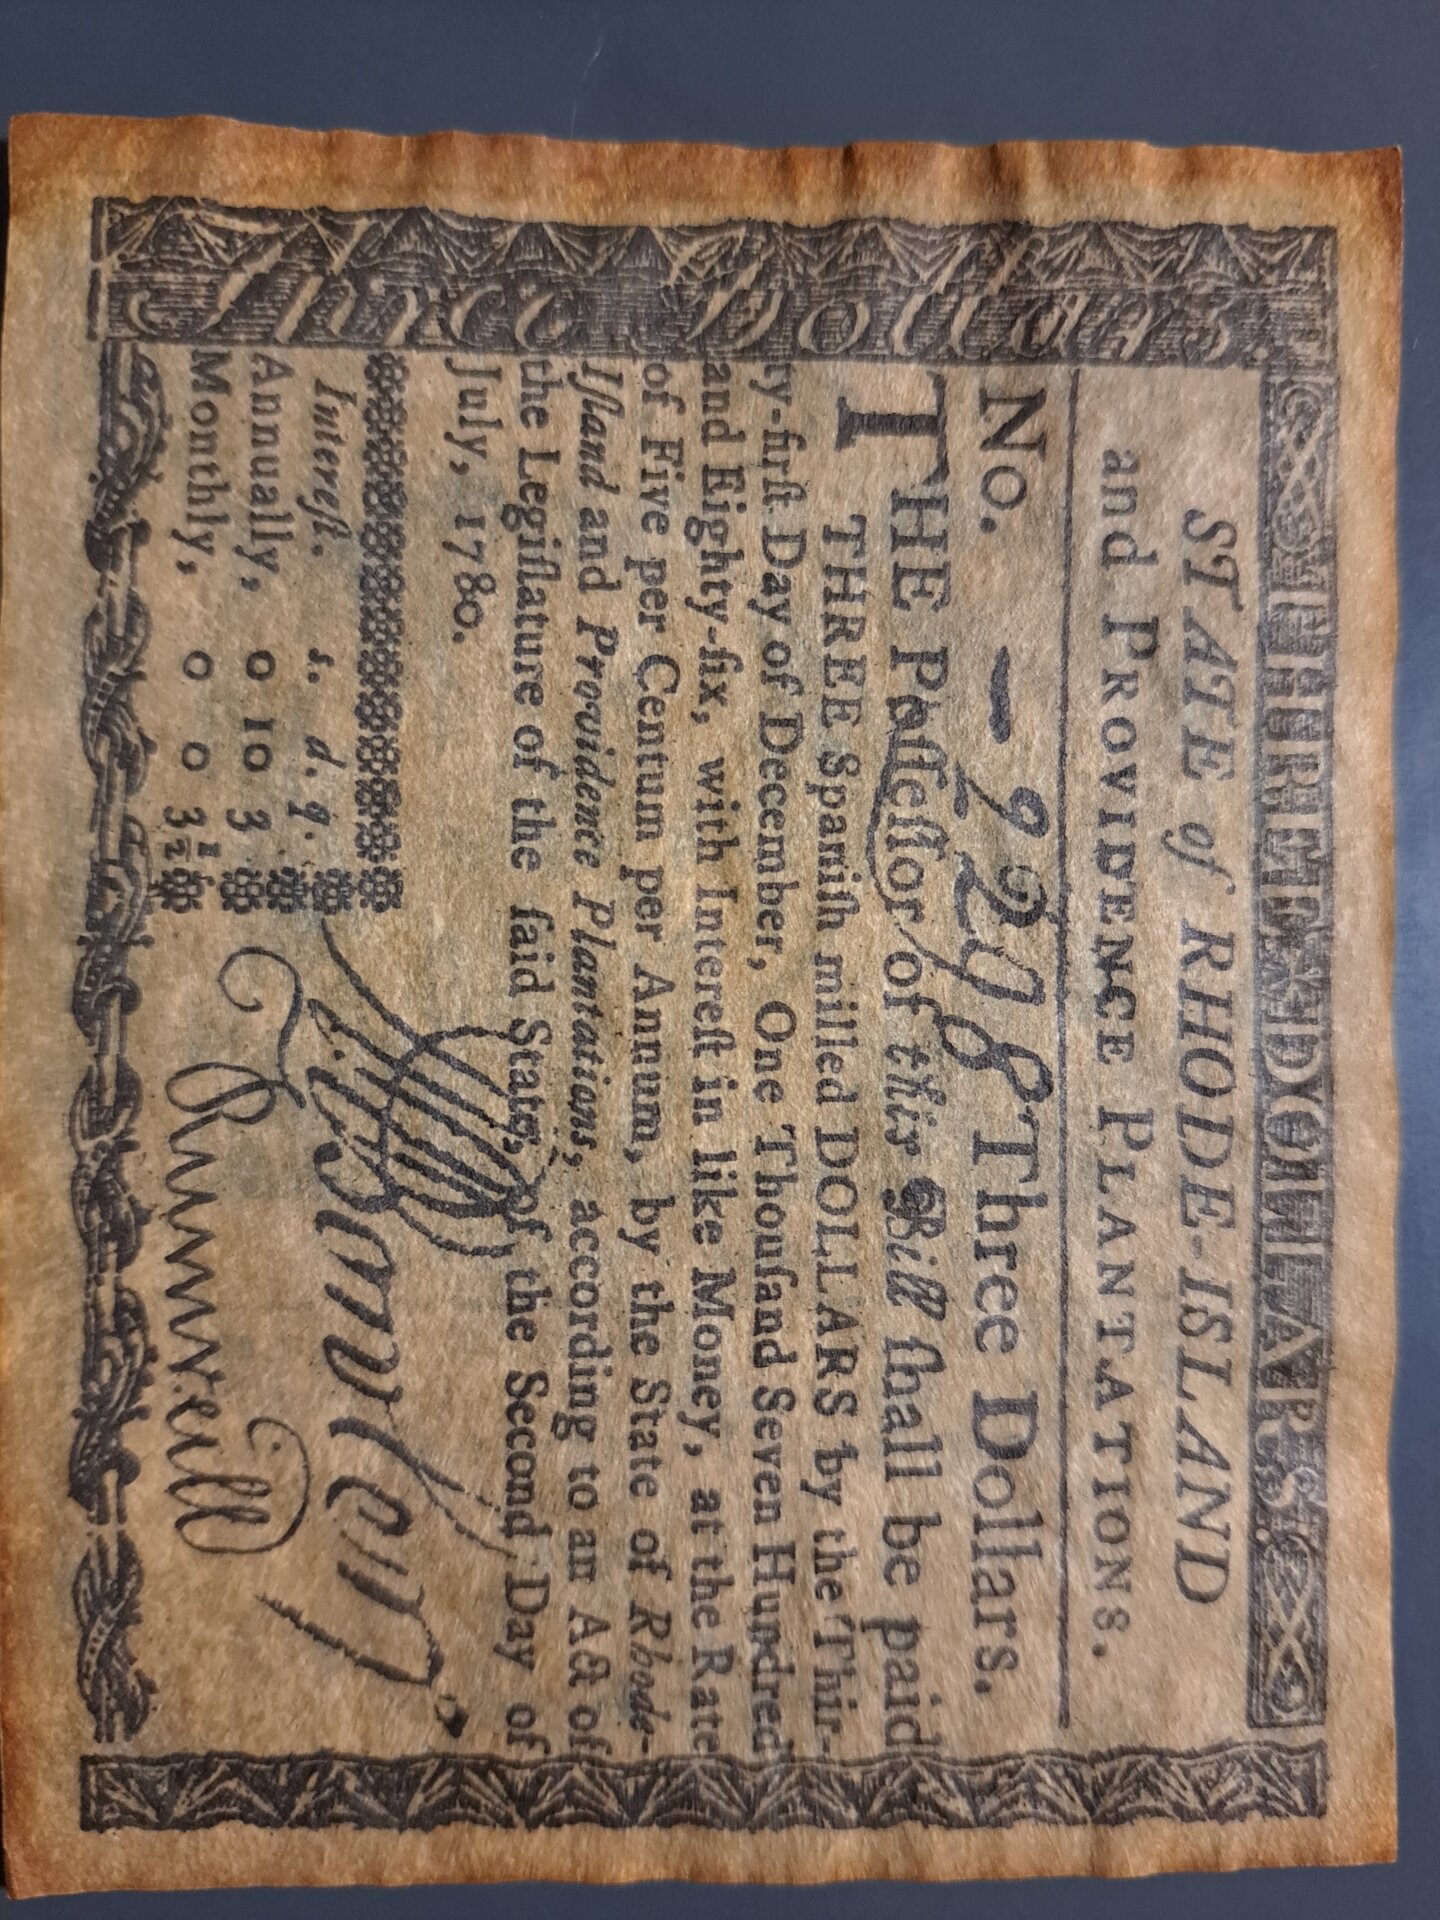 THREE DOLLARS.
Three Dollars
STATE of RHODE-ISLAND
and PROVIDENCE PLANTATIONS.
No. - 2298 Three Dollars.
THE Poſſeſſor of this Bill ſhall be paid
THREE Spaniſh milled DOLLARS by the Thir-
ty-firſt Day of December, One Thouſand Seven Hundred
and Eighty-ſix, with Intereſt in like Money, at the Rate
of Five per Centum per Annum, by the State of Rhode-
Iſland and Providence Plantations, according to an Act of
the Legiſlature of the ſaid State, of the Second Day of
July, 1780.
Intereſt. s. d. q.
Annually, 0 10 3
Monthly, 0 0 3 1/2